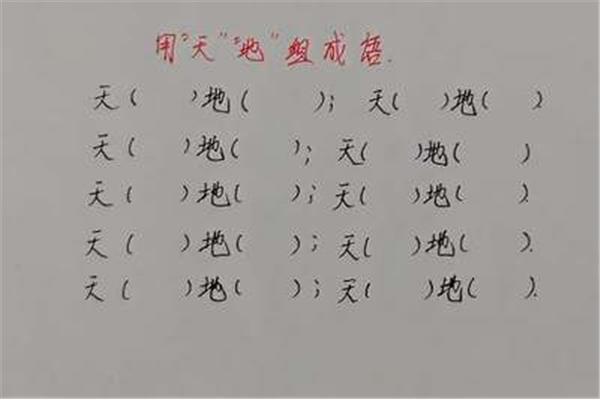 用"天""地"组成语.
天( )地( ); 天( )地( )
天( )地( ); 天( )地( )
天( )地( ); 天( )地( ).
天( )地( ); 天( )地( ).
天( )地( ); 天( )地( ).